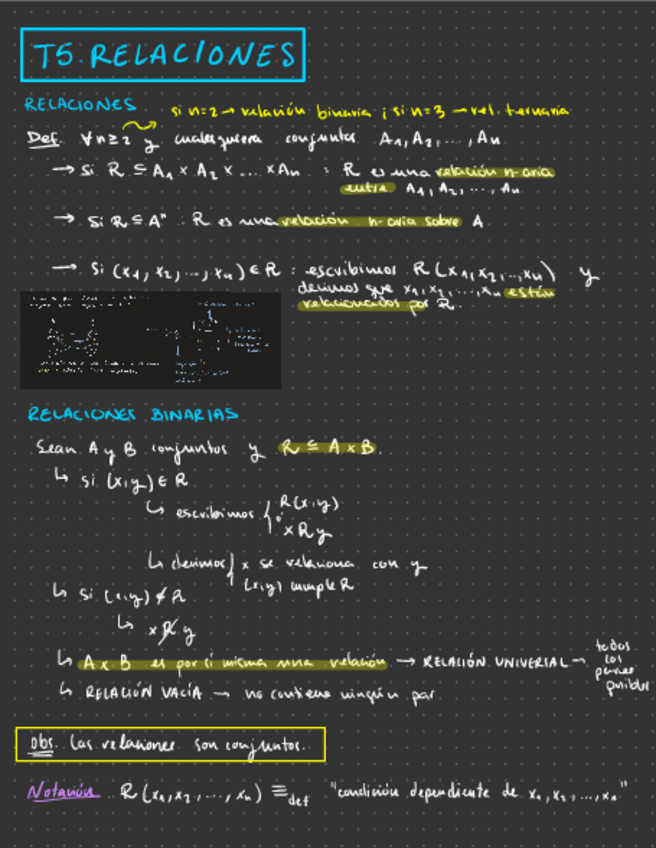 T5. RELACIONES
RELACIONES si n=2 → relación binaria ; si n=3 → rel. ternaria
Def. ∀n≥2 y cualesquiera conjuntos A₁, A₂, ..., Aₙ
→ Si R ⊆ A₁ × A₂ × ... × Aₙ : R es una relación n-aria
entre A₁, A₂, ..., Aₙ
→ Si R ⊆ Aⁿ : R es una relación n-aria sobre A
→ Si (x₁, x₂, ..., xₙ) ∈ R : escribimos R(x₁, x₂, ..., xₙ) y
decimos que x₁, x₂, ..., xₙ están
relacionados por R.
RELACIONES BINARIAS
Sean A y B conjuntos y R ⊆ A × B.
↳ Si (x,y) ∈ R
↳ escribimos { R(x,y)
x R y
↳ decimos { x se relaciona con y
(x,y) cumple R
↳ Si (x,y) ∉ R
↳ x R̸ y
↳ A × B es por sí misma una relación → RELACIÓN UNIVERSAL → todos
los
pares
posibles
↳ RELACIÓN VACÍA → no contiene ningún par
Obs. Las relaciones son conjuntos.
Notación. R(x₁, x₂, ..., xₙ) ≡def "condición dependiente de x₁, x₂, ..., xₙ"